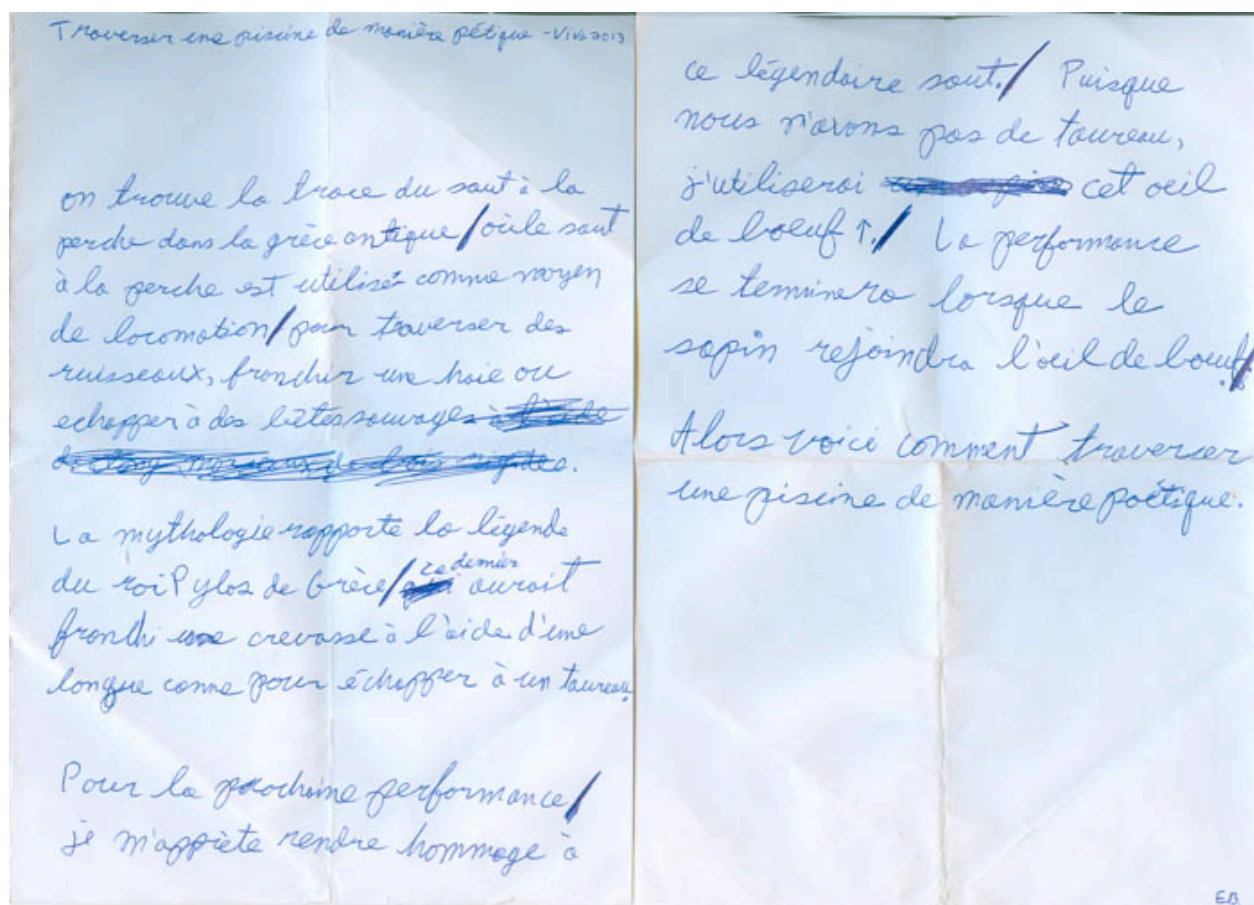 Traverser une piscine de manière pétique - Viva 2013
on trouve la trace du saut à la
perche dans la grèce antique / où le saut
à la perche est utilisé comme moyen
de locomotion / pour traverser des
ruisseaux, franchir une haie ou
echapper à des bêtes sauvages à l'aide
de morceaux de bois rigides.
La mythologie rapporte la légende
du roi Pylos de Grèce / ce dernier aurait
franchi une crevasse à l'aide d'une
longue canne pour échapper à un taureau.
Pour la prochaine performance /
je m'apprète rendre hommage à
ce légendaire saut. / Puisque
nous n'avons pas de taureau,
j'utiliserai cet oeil
de boeuf ↑. / La performance
se terminera lorsque le
sapin rejoindra l'oeil de boeuf. /
Alors voici comment traverser
une piscine de manière poétique.
E.B.